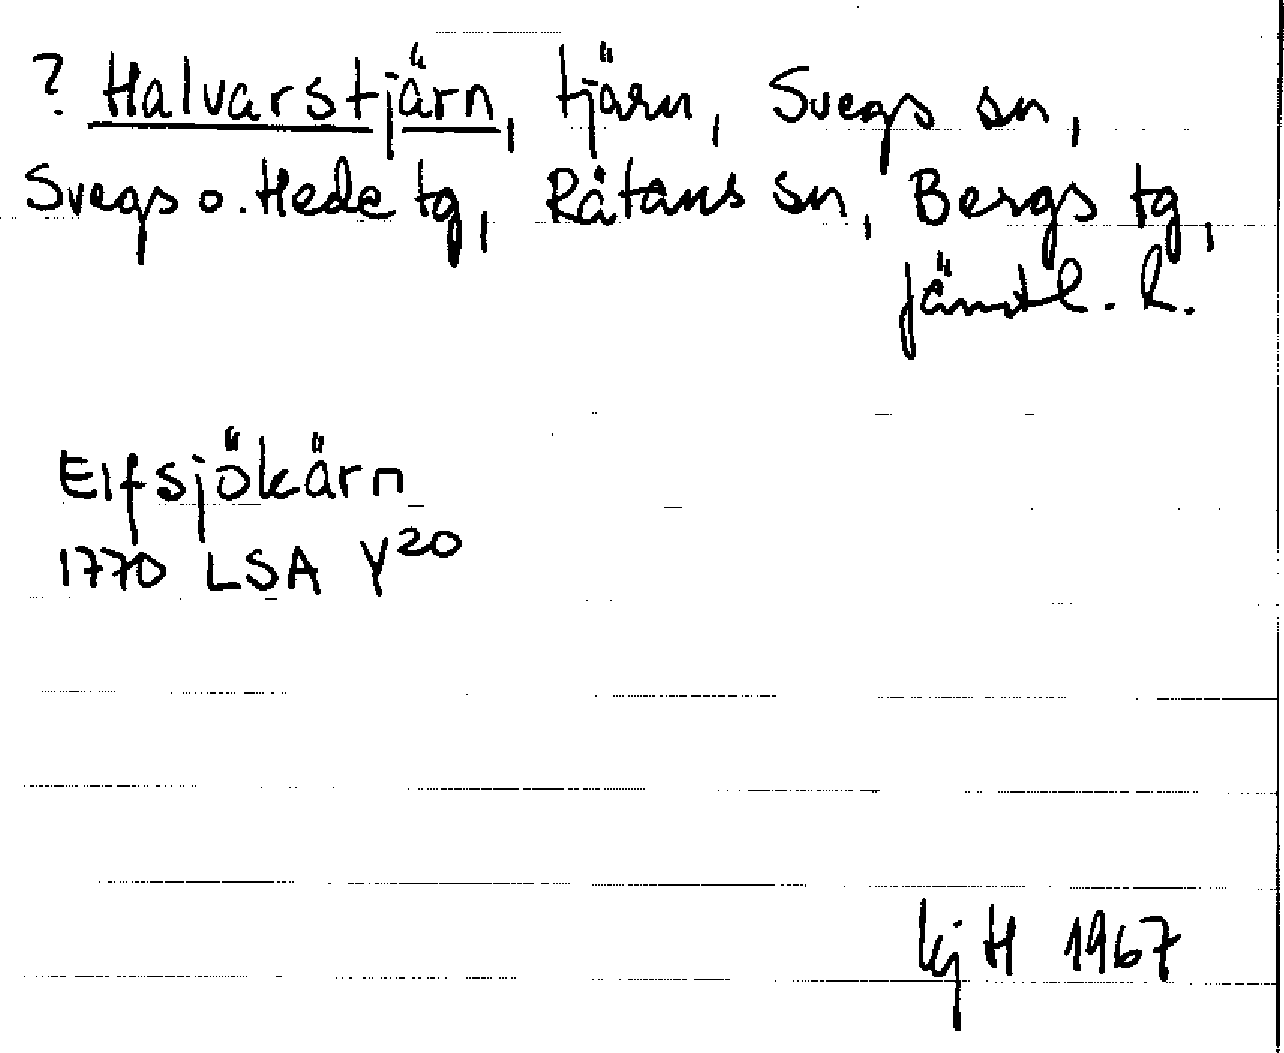 ? Halvarstjärn, tjärn, Svegs sn,
Svegs o. Hede tg, Råtans sn, Bergs tg,
Jämtl. l.
Elfsjökärn
1770 LSA Y20
kj H 1967